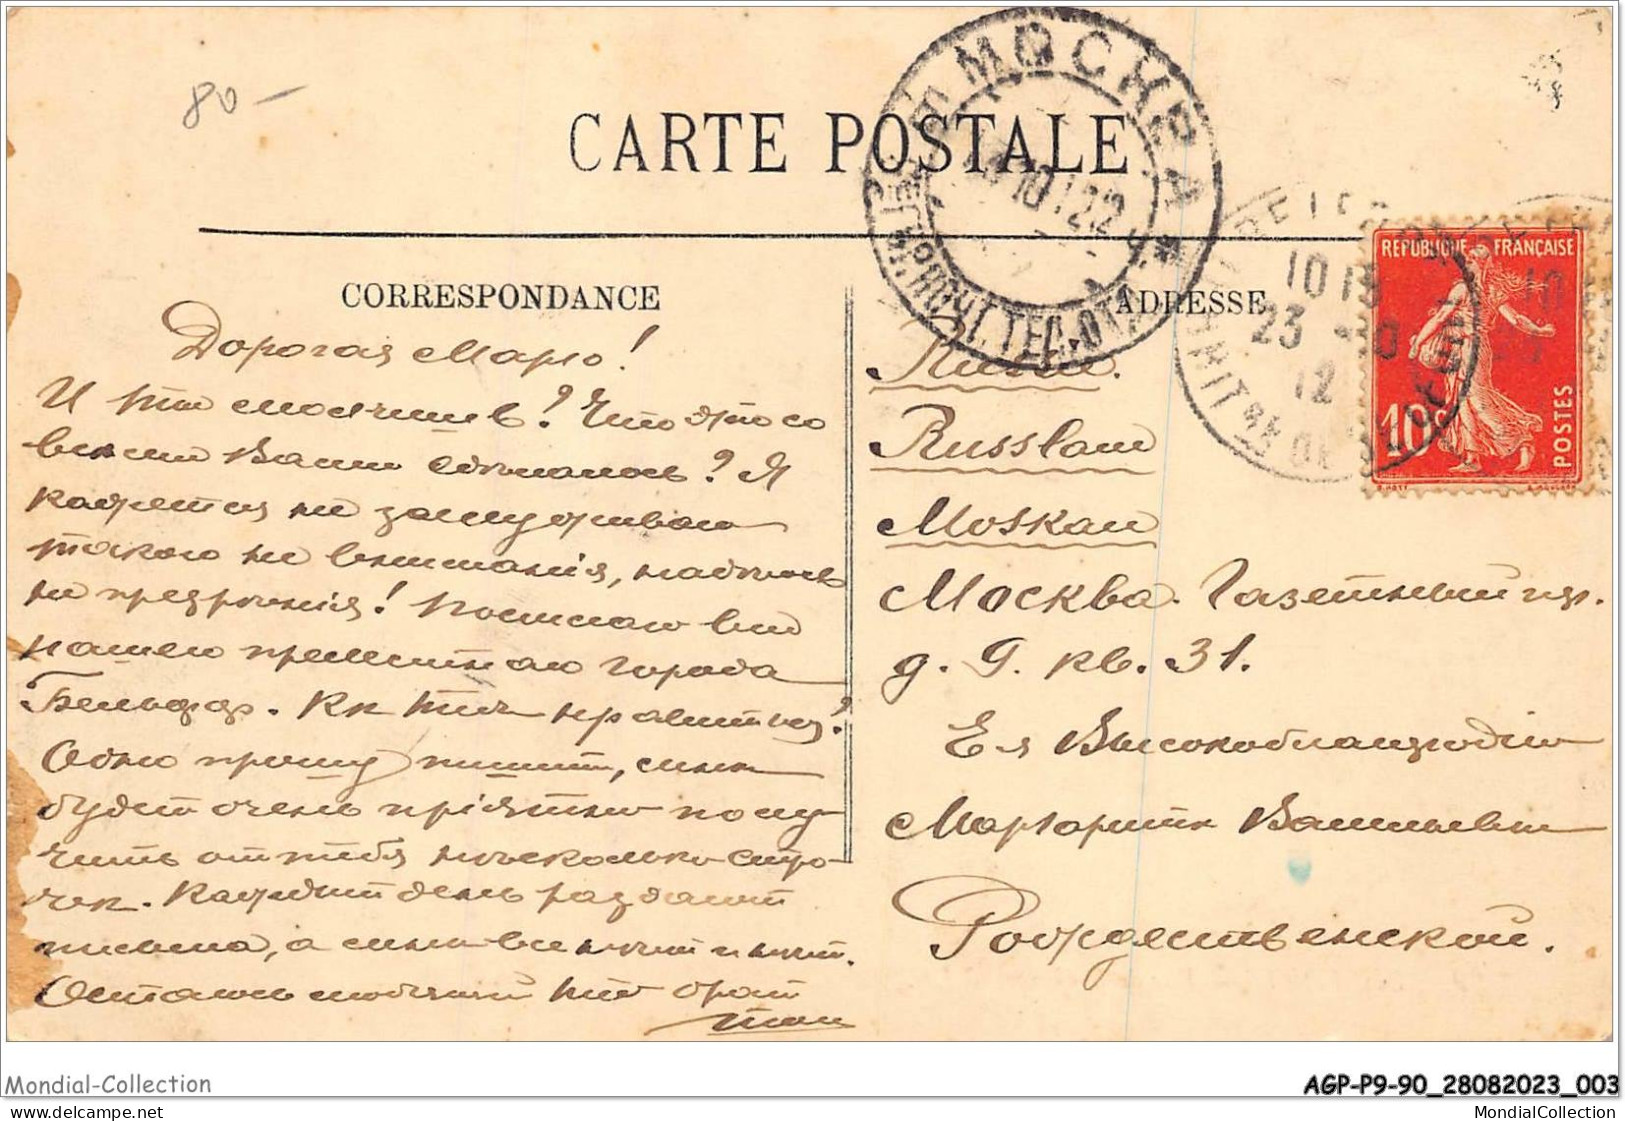 80 –
CARTE POSTALE
МОСКВА
10 12 12
CORRESPONDANCE
ADRESSE
REPUBLIQUE FRANÇAISE
10c
POSTES
10 15
23 -10
12
Дорогая Марго!
И ты молчишь? Что это со
всѣми Вами сдѣлалось? Я
кажется не заслуживаю
такого не вниманія, надѣюсь
не презрѣнія! Посылаю вид
нашего прелестнаго города
Бельфор. Как тебѣ нравится?
Одно прошу пиши, мнѣ
будет очень пріятно полу-
чить от тебя нѣсколько строчек.
Каждый день раздают
письма, а мнѣ все нѣт и нѣт.
Остаюсь любящий тебя брат
Russie.
Russland
Moskau
Москва. Газетный пер.
д. 9. кв. 31.
Ея Высокоблагородію
Маргаритѣ Васильевнѣ
Рождественской.
Mondial-Collection
AGP-P9-90_28082023_003
MondialCollection